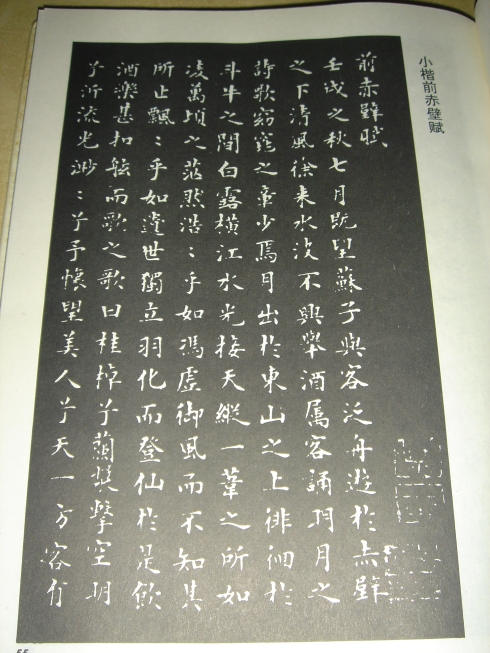 小楷前赤壁赋
前赤壁賦
壬戌之秋七月既望蘇子與客泛舟遊於赤壁
之下清風徐来水波不興舉酒属客誦明月之
詩歌窈窕之章少焉月出於東山之上徘徊於
斗牛之間白露横江水光接天縱一葦之所如
凌萬頃之茫然浩:乎如馮虛御風而不知其
所止飄:乎如遺世獨立羽化而登仙於是飲
酒樂甚扣舷而歌之歌曰桂棹兮蘭槳擊空明
兮泝流光渺:兮予懷望美人兮天一方客有